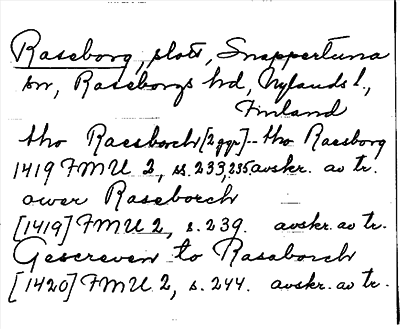 Raseborg, slott, Snappertuna
sn, Raseborgs hd, Nylands l.,
Finland
tho Raesborch [2 ggr] - tho Raesborg
1419 FMU 2, ss. 233, 235 avskr. av tr.
ower Raseborch
[1419] FMU 2, s. 239. avskr. av tr.
Gescreven to Rasaborch
[1420] FMU 2, s. 244. avskr. av tr.